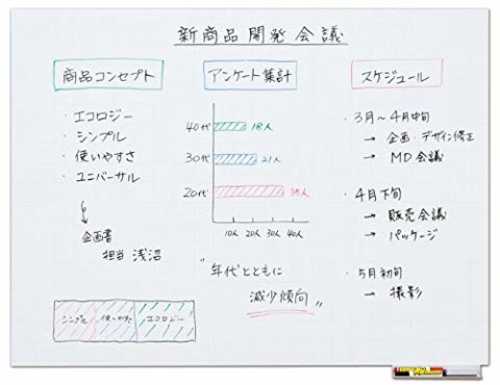 新商品開発会議
商品コンセプト
・エコロジー
・シンプル
・使いやすさ
・ユニバーサル
企画書
担当 浅沼
シンプル 使いやすさ エコロジー
アンケート集計
40代 18人
30代 21人
20代
10人 20人 30人 40人
"年代とともに
減少傾向"
スケジュール
・3月〜4月中旬
→ 企画・デザイン修正
→ MD会議
・4月下旬
→ 販売会議
→ パッケージ
・5月初旬
→ 撮影